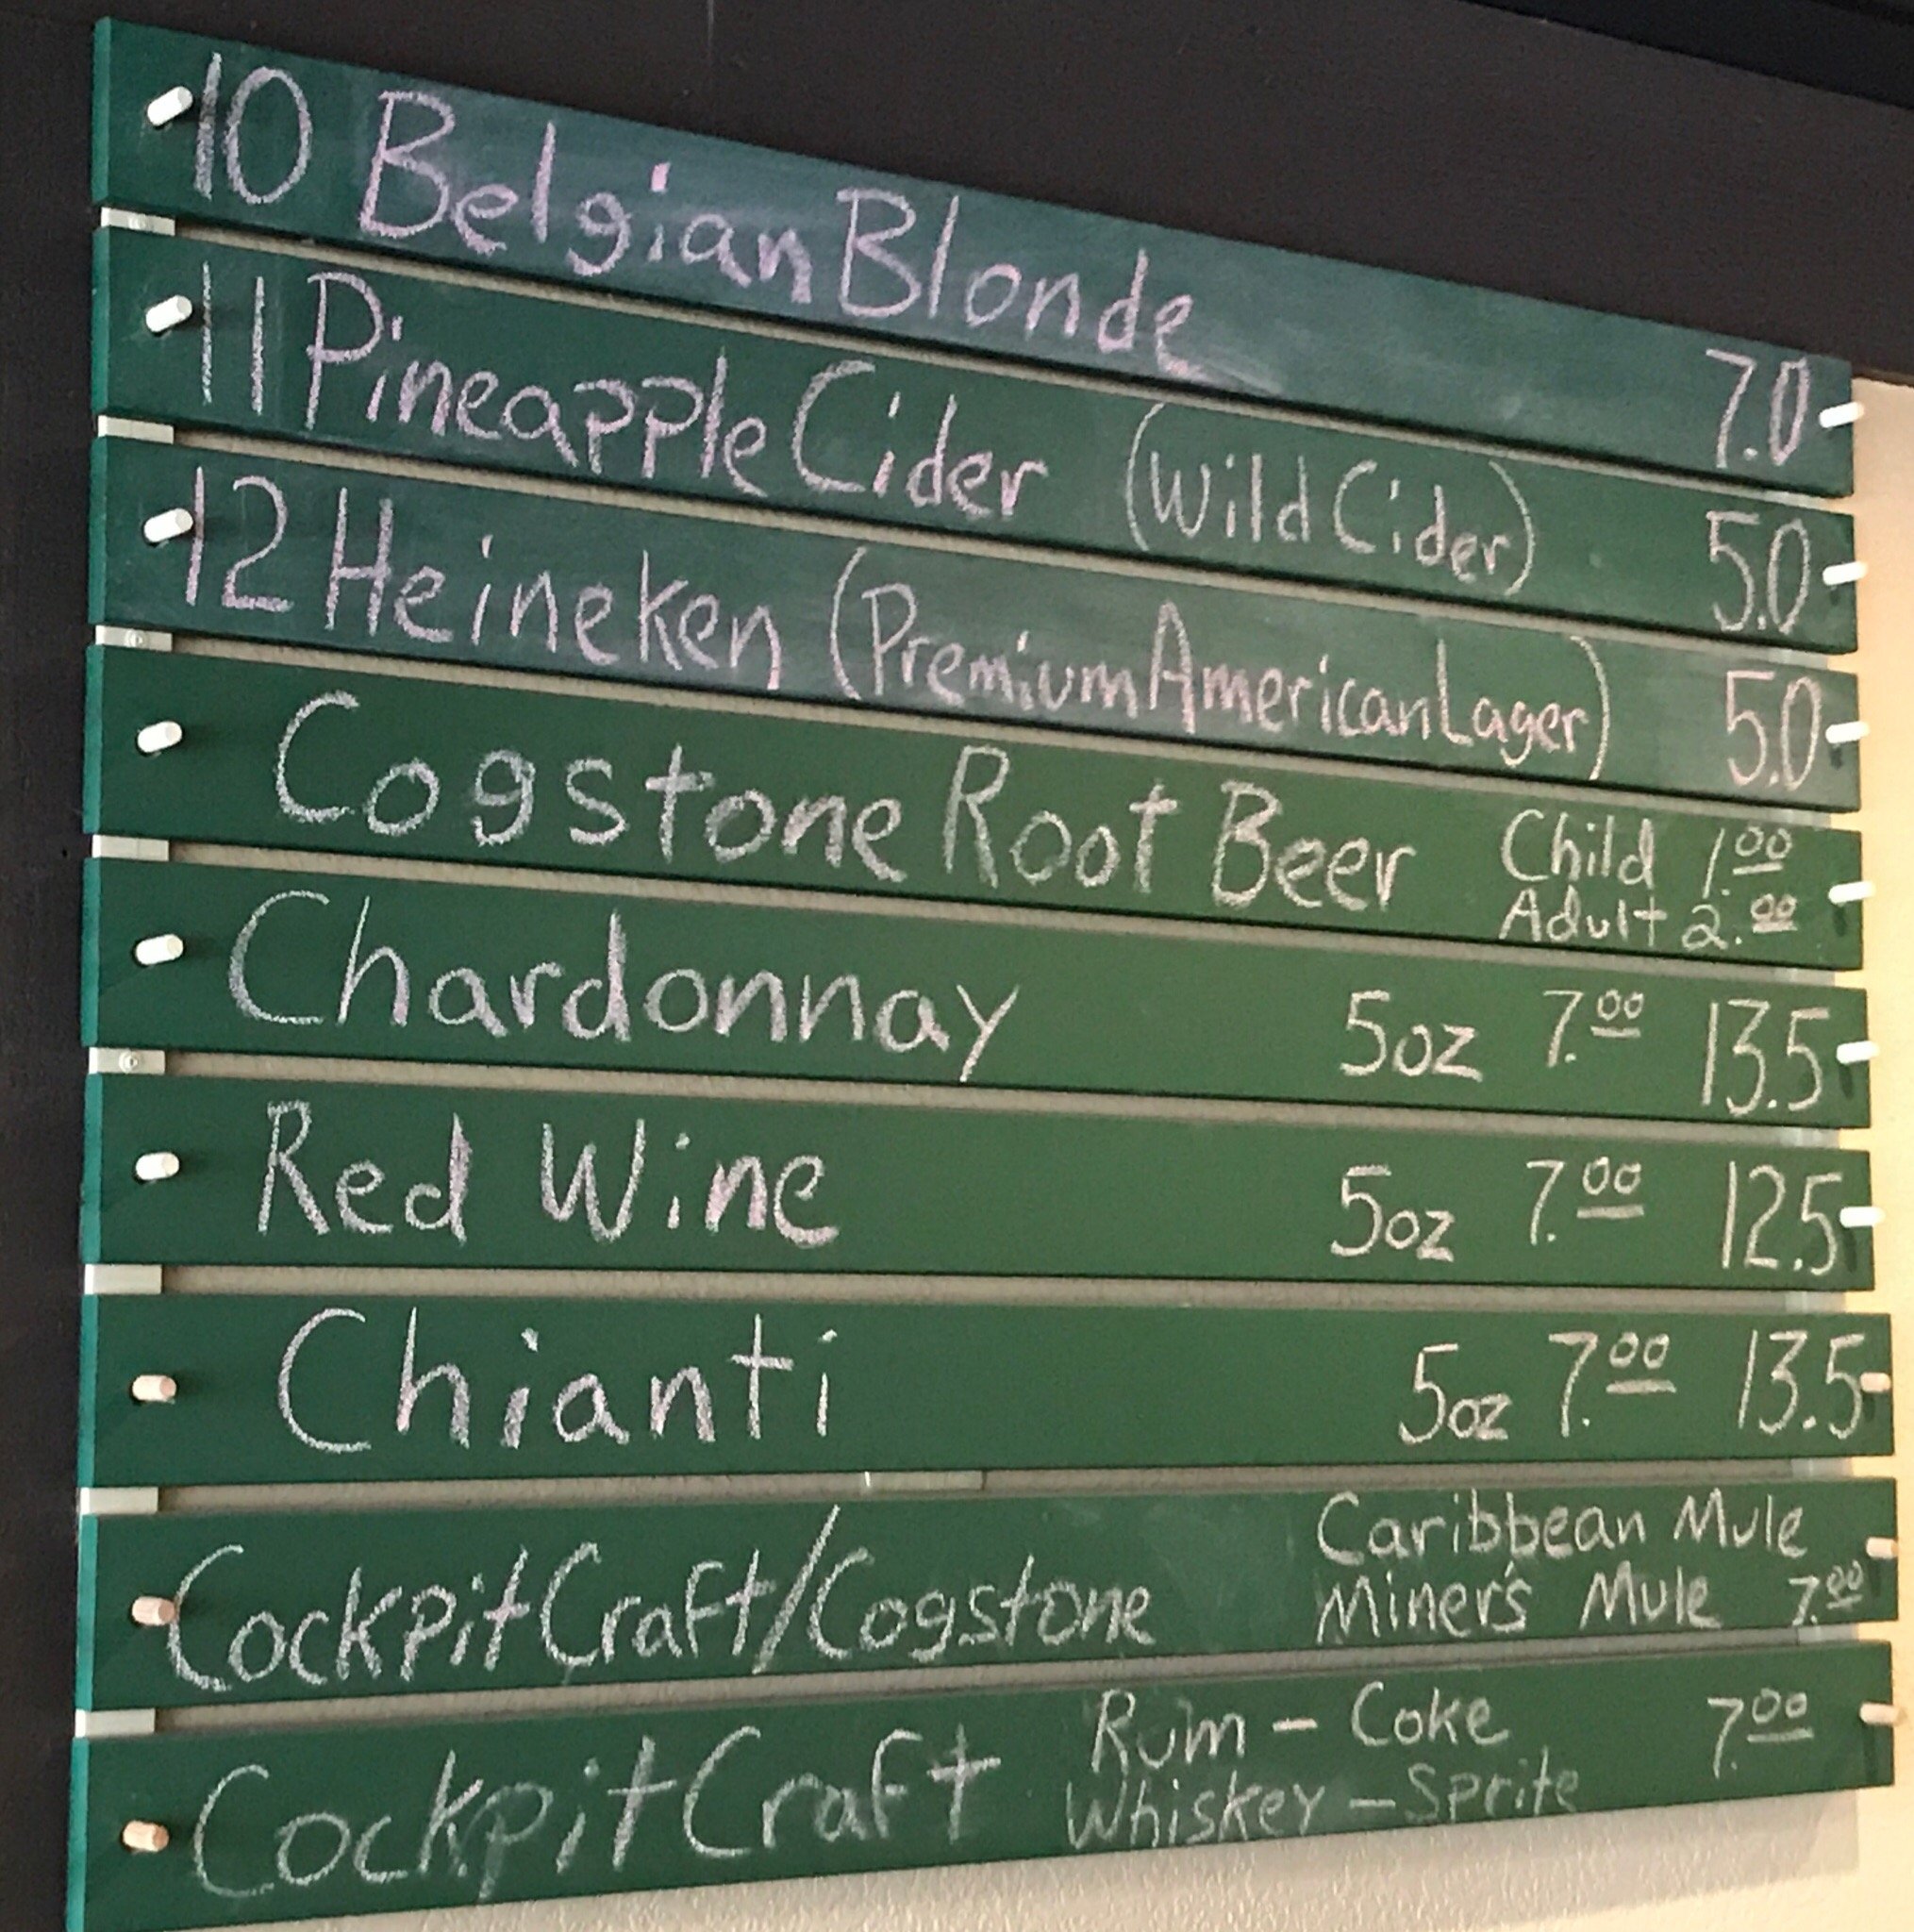 10 Belgian Blonde 7.0
11 Pineapple Cider (Wild Cider) 5.0
12 Heineken (Premium American Lager) 5.0
Cogstone Root Beer Child 1.00
Adult 2.00
Chardonnay 5oz 7.00 13.5
Red Wine 5oz 7.00 12.5
Chianti 5oz 7.00 13.5
Cockpit Craft/Cogstone Caribbean Mule
Miner's Mule 7.00
Cockpit Craft Rum - Coke 7.00
Whiskey - Sprite